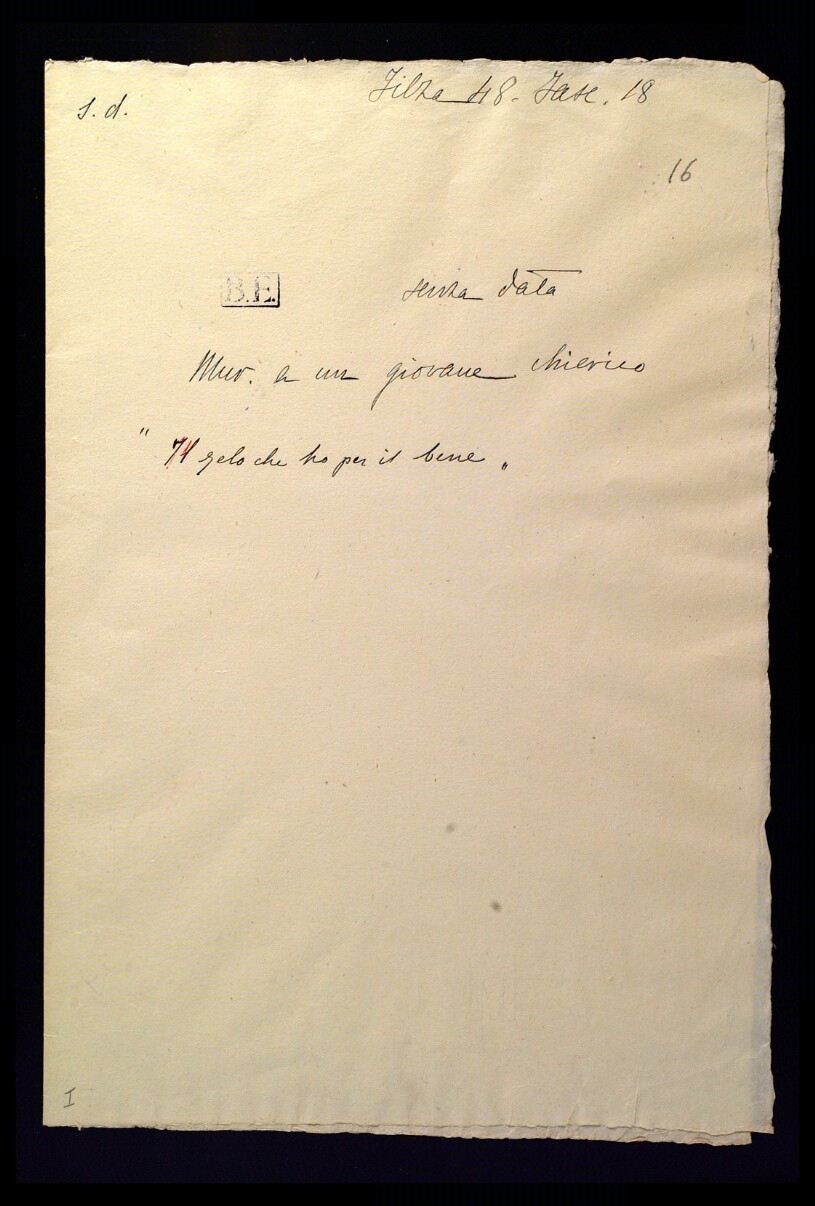 s. d.
Filza 48 - Fasc. 18
16
B.E.
senza data
Mur. a un giovane chierico
" Il zelo che ho per il bene "
I